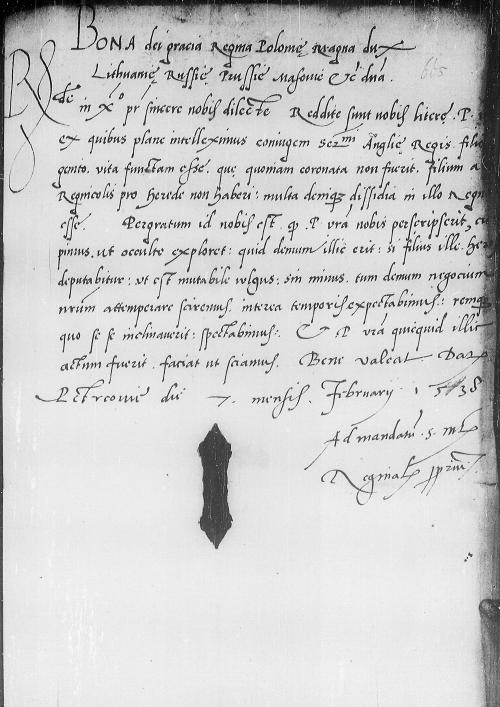 BONA dei gracia Regina Polonię Magna dux
Lithuanię Russię Prussię Masovię &c dna.
R
de in Xo pr sincere nobis dilecte Reddite sunt nobis literę . P.
ex quibus plane intelleximus coniugem Sermi Anglię Regis . filio
genito . vita functam esse . quę quoniam coronata non fuerit . filium a
Regnicolis pro herede non haberi : multa denique dissidia in illo Regn
esse . Pergratum id nobis est . P. vra nobis perscripserit,
pimus . ut occulte exploret : quid demum illic erit : si filius ille . Her
deputabitur : ut est mutabile vulgus : sin minus . tum demum negocium
nrum attemperare sciremus . interea temporis expectabimus :
quo se se inclinaverit : spectabimus . P. vra quicquid illic
actum fuerit . faciat ut sciamus . Bene valeat . Dat
Petrcovię die 7. mensis . February . 1538
Ad mandatu s. m
Reginal